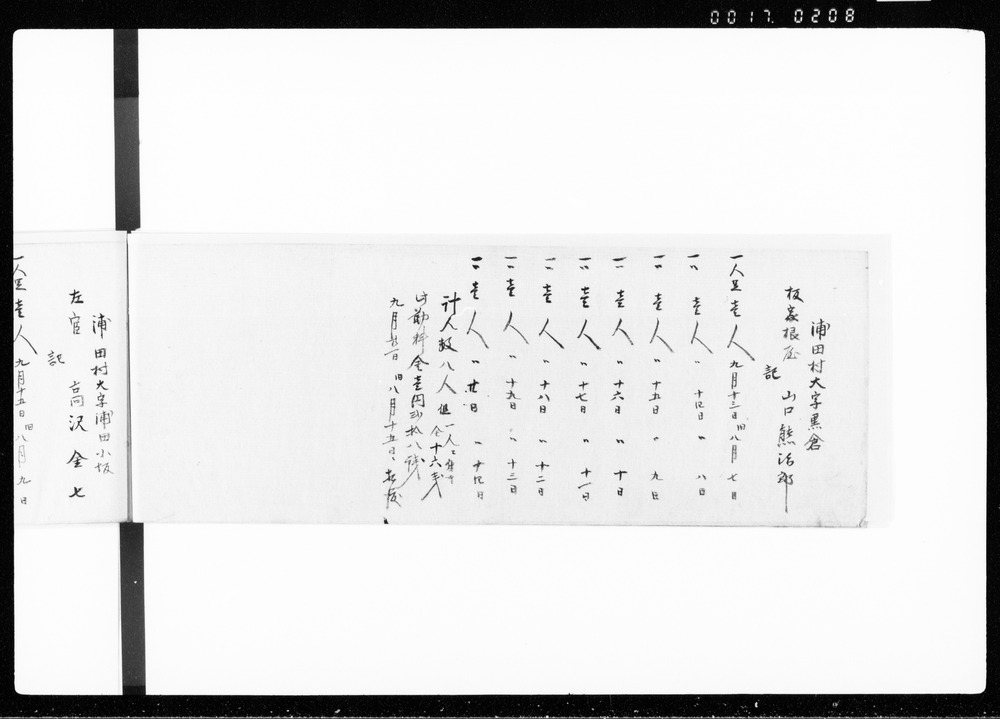 0017. 0208
浦田村大字黒倉
板家根屋 山口熊治郎
記
一人足壱人 九月十三日 旧八月七日
一〃壱人 〃十四日 〃八日
一〃壱人 〃十五日 〃九日
一〃壱人 〃十六日 〃十日
一〃壱人 〃十七日 〃十一日
一〃壱人 〃十八日 〃十二日
一〃壱人 〃十九日 〃十三日
一〃壱人 〃廿日 〃十四日
計人数八人 但一人ニ付
金十六銭
此勘料金壱円弐拾八銭
九月廿一日 旧八月十五日
浦田村大字浦田小坂
左官 高沢金七
記
一人足壱人 九月十五日 旧八月九日